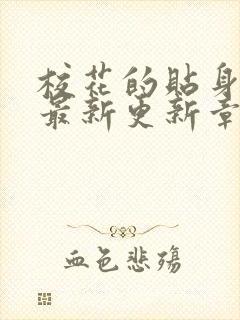 校花的贴身
最新更新章
血色悲殇